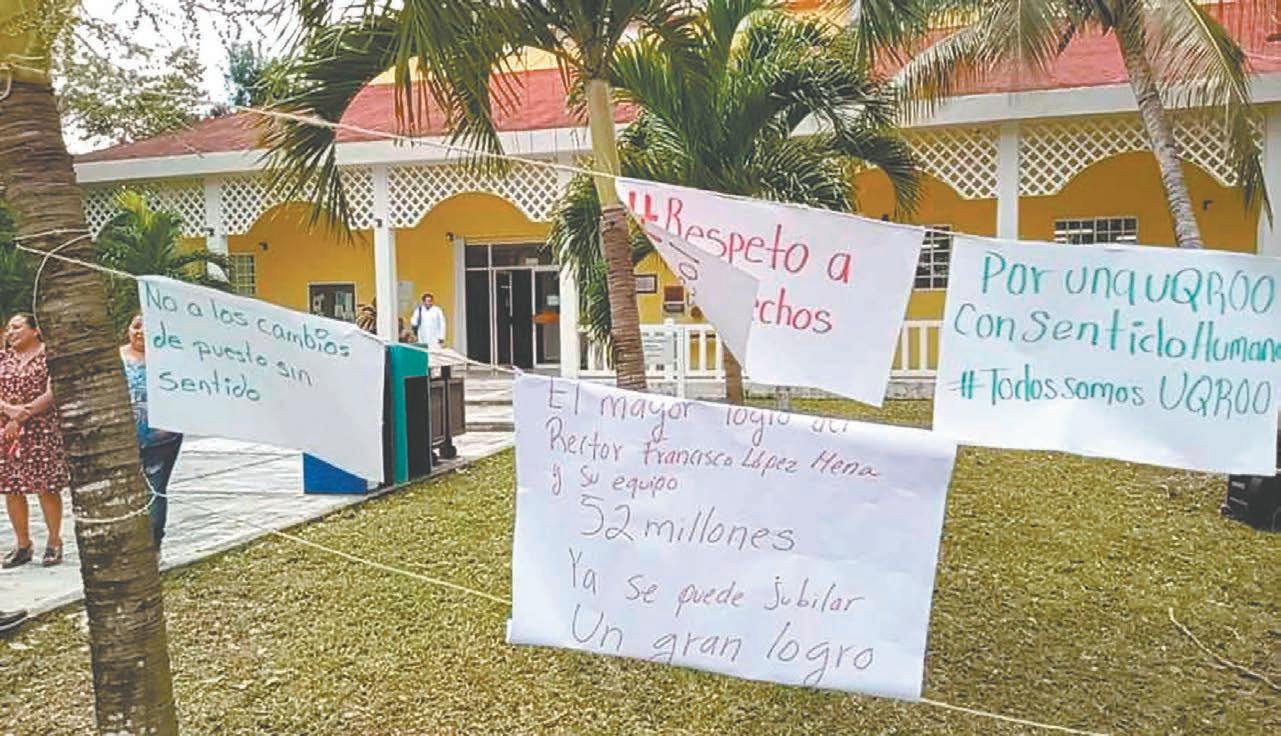 No a los cambios
de puesto sin
sentido
Respeto a
echos
El mayor logro del
Rector Francisco López Mena
y su equipo
52 millones
Ya se puede jubilar
Un gran logro
Por una UQROO
Con Sentido Humano
#Todos somos UQROO